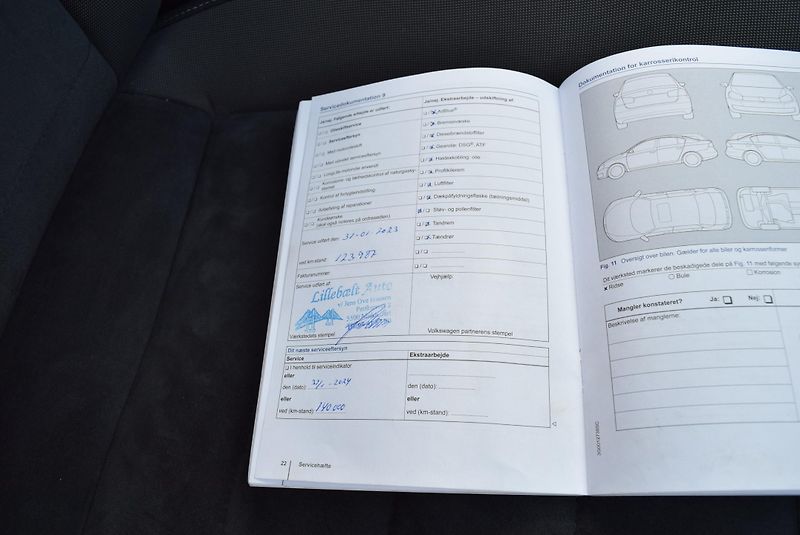 Servicedokumentation 9
Ja/nej: Følgende arbejde er udført:
☐/☐ Olieskiftservice
☐/☐ Serviceeftersyn
☐/☐ Med motorolieskift
☐/☐ Med udvidet serviceeftersyn
☐/☐ LongLife-motorolie anvendt
☐/☐ Kontrol af fortøjgleindstilling
☐/☐ Anbefaling af reparationer
☐/☐ Kundeønske
(skal også noteres på ordresedlen)
Service udført den: 31-01 2023
ved km-stand: 123.987
Fakturanummer:
Service udført af:
Lillebælt Auto
v/ Jens Ove Hansen
Værkstedets stempel
Ja/nej: Ekstraarbejde – udskiftning af:
AdBlue®
Bremsevæske
Dieselbrændstoffilter
Gearolie: DSG®, ATF
Haldexkobling: olie
Profilkilerem
Luftfilter
Dækpåfyldningsflaske (tætningsmiddel)
Støv- og pollenfilter
Tandrem
Tændrør
Vejhjælp:
Volkswagen partnerens stempel
Dit næste serviceeftersyn
Service
Ekstraarbejde
☐ I henhold til serviceindikator
eller
den (dato): 31/1 -2024
den (dato):
eller
eller
ved (km-stand) 140.000
ved (km-stand):
22
Servicehæfte
Dokumentation for karrosserikontrol
Fig. 11 Oversigt over bilen: Gælder for alle biler og karrosseriformer
Dit værksted markerer de beskadigede dele på Fig. 11 med følgende
x Ridse
☐ Bule
☐ Korrosion
Mangler konstateret?
Ja: ☐
Nej: ☐
Beskrivelse af manglerne: